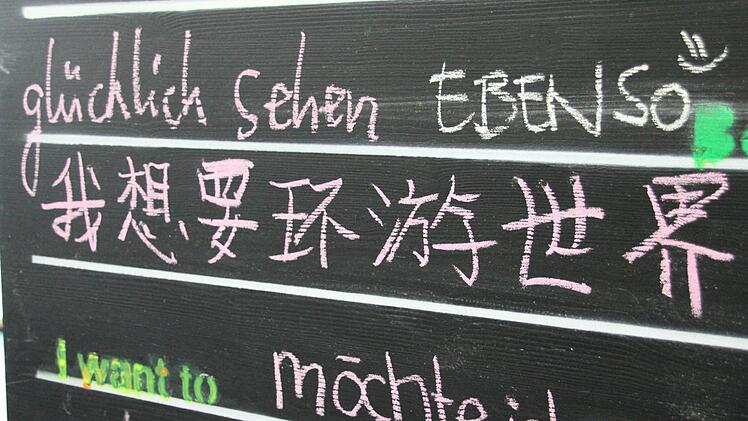 glücklich sehen EBENSO
我想要环游世界
I want to möchte ich